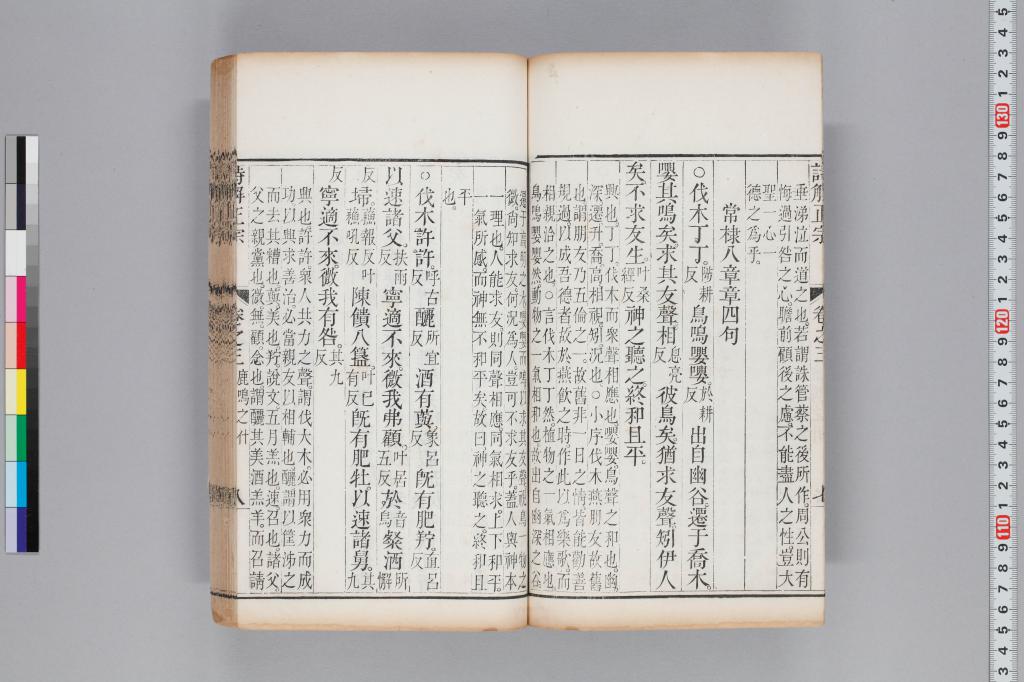 詩解正宗 卷之三 七
垂涕泣而道之也若謂誅管蔡之後所作周公則有
悔過引咎之心瞻前顧後之慮不能盡人之性豈大
聖一心一
德之為乎
常棣八章章四句
○伐木丁丁陟耕反鳥鳴嚶嚶於耕反出自幽谷遷于喬木
嚶其鳴矣求其友聲相息亮反彼鳥矣猶求友聲矧伊人
矣不求友生叶桑經反神之聽之終和且平
興也丁丁伐木而眾聲相應也嚶嚶鳥聲之和也幽
深遷升喬高相視矧况也○小序伐木燕朋友故舊
也謂朋友乃五倫之一故舊非一日之情皆能勸善
規過以成吾德者故於燕飲之時作此以為樂歌而
相親洽之也○言伐木丁丁然植物之一氣相應也
鳥鳴嚶嚶然動物之一氣相和也故出自幽深之谷
遷于高喬之木嚶嚶而鳴以求其友聲視鳥一物之
微尚知求友何況為人豈可不求友乎蓋人與神本
一理也人能求友則同聲相應同氣相求上下和平
一氣所感而神無不和平矣故曰神之聽之終和且
平也
○伐木許許呼古反釃所宜反酒有藇象呂反既有肥羜直呂反
以速諸父扶雨反寧適不來微我弗顧叶居五反於音烏粲洒所懈
反埽蘇報反叶蘇吼反陳饋八簋叶已有反既有肥牡以速諸舅其九
反寧適不來微我有咎其九反
興也許許眾人共力之聲謂伐大木必用眾力而成
功以興求善治必當親友以相輔也釃謂以筐泲之
而去其糟也藇美也羜說文五月羔也速召也諸父
父之親黨也微無顧念也謂釃其美酒羔羊而召諸
詩解正宗 卷之三 鹿鳴之什 八